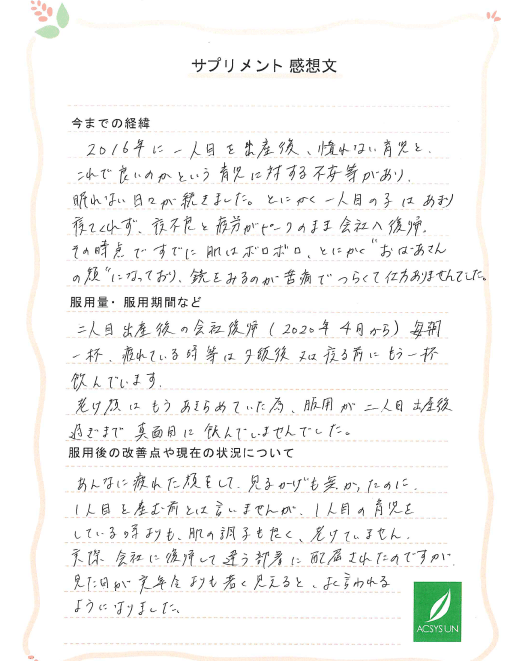 サプリメント 感想文
今までの経緯
2016年に一人目を出産後、慣れない育児と、
これで良いのかという育児に対する不安等があり、
眠れない日々が続きました。とにかく一人目の子はあまり
寝てくれず、寝不足と疲労がピークのまま会社へ復帰。
その時点ですでに肌はボロボロ、とにかく"おばあさん
の顔"になっており、鏡をみるのが苦痛でつらくて仕方ありませんでした。
服用量・服用期間など
二人目出産後の会社復帰(2020年4月から)毎朝
一杯、疲れている時等は夕飯後又は寝る前にもう一杯
飲んでいます。
老け顔はもうあきらめていた為、服用が二人目出産後
過ぎまで真面目に飲んでいませんでした。
服用後の改善点や現在の状況について
あんなに疲れた顔をして、見るかげも無かったのに、
1人目を産む前とは言いませんが、1人目の育児を
している時よりも、肌の調子も良く、老けていません。
実際会社に復帰して違う部署に配属されたのですが、
見た目が実年令よりも若く見えると、よく言われる
ようになりました。
ACSYSUN